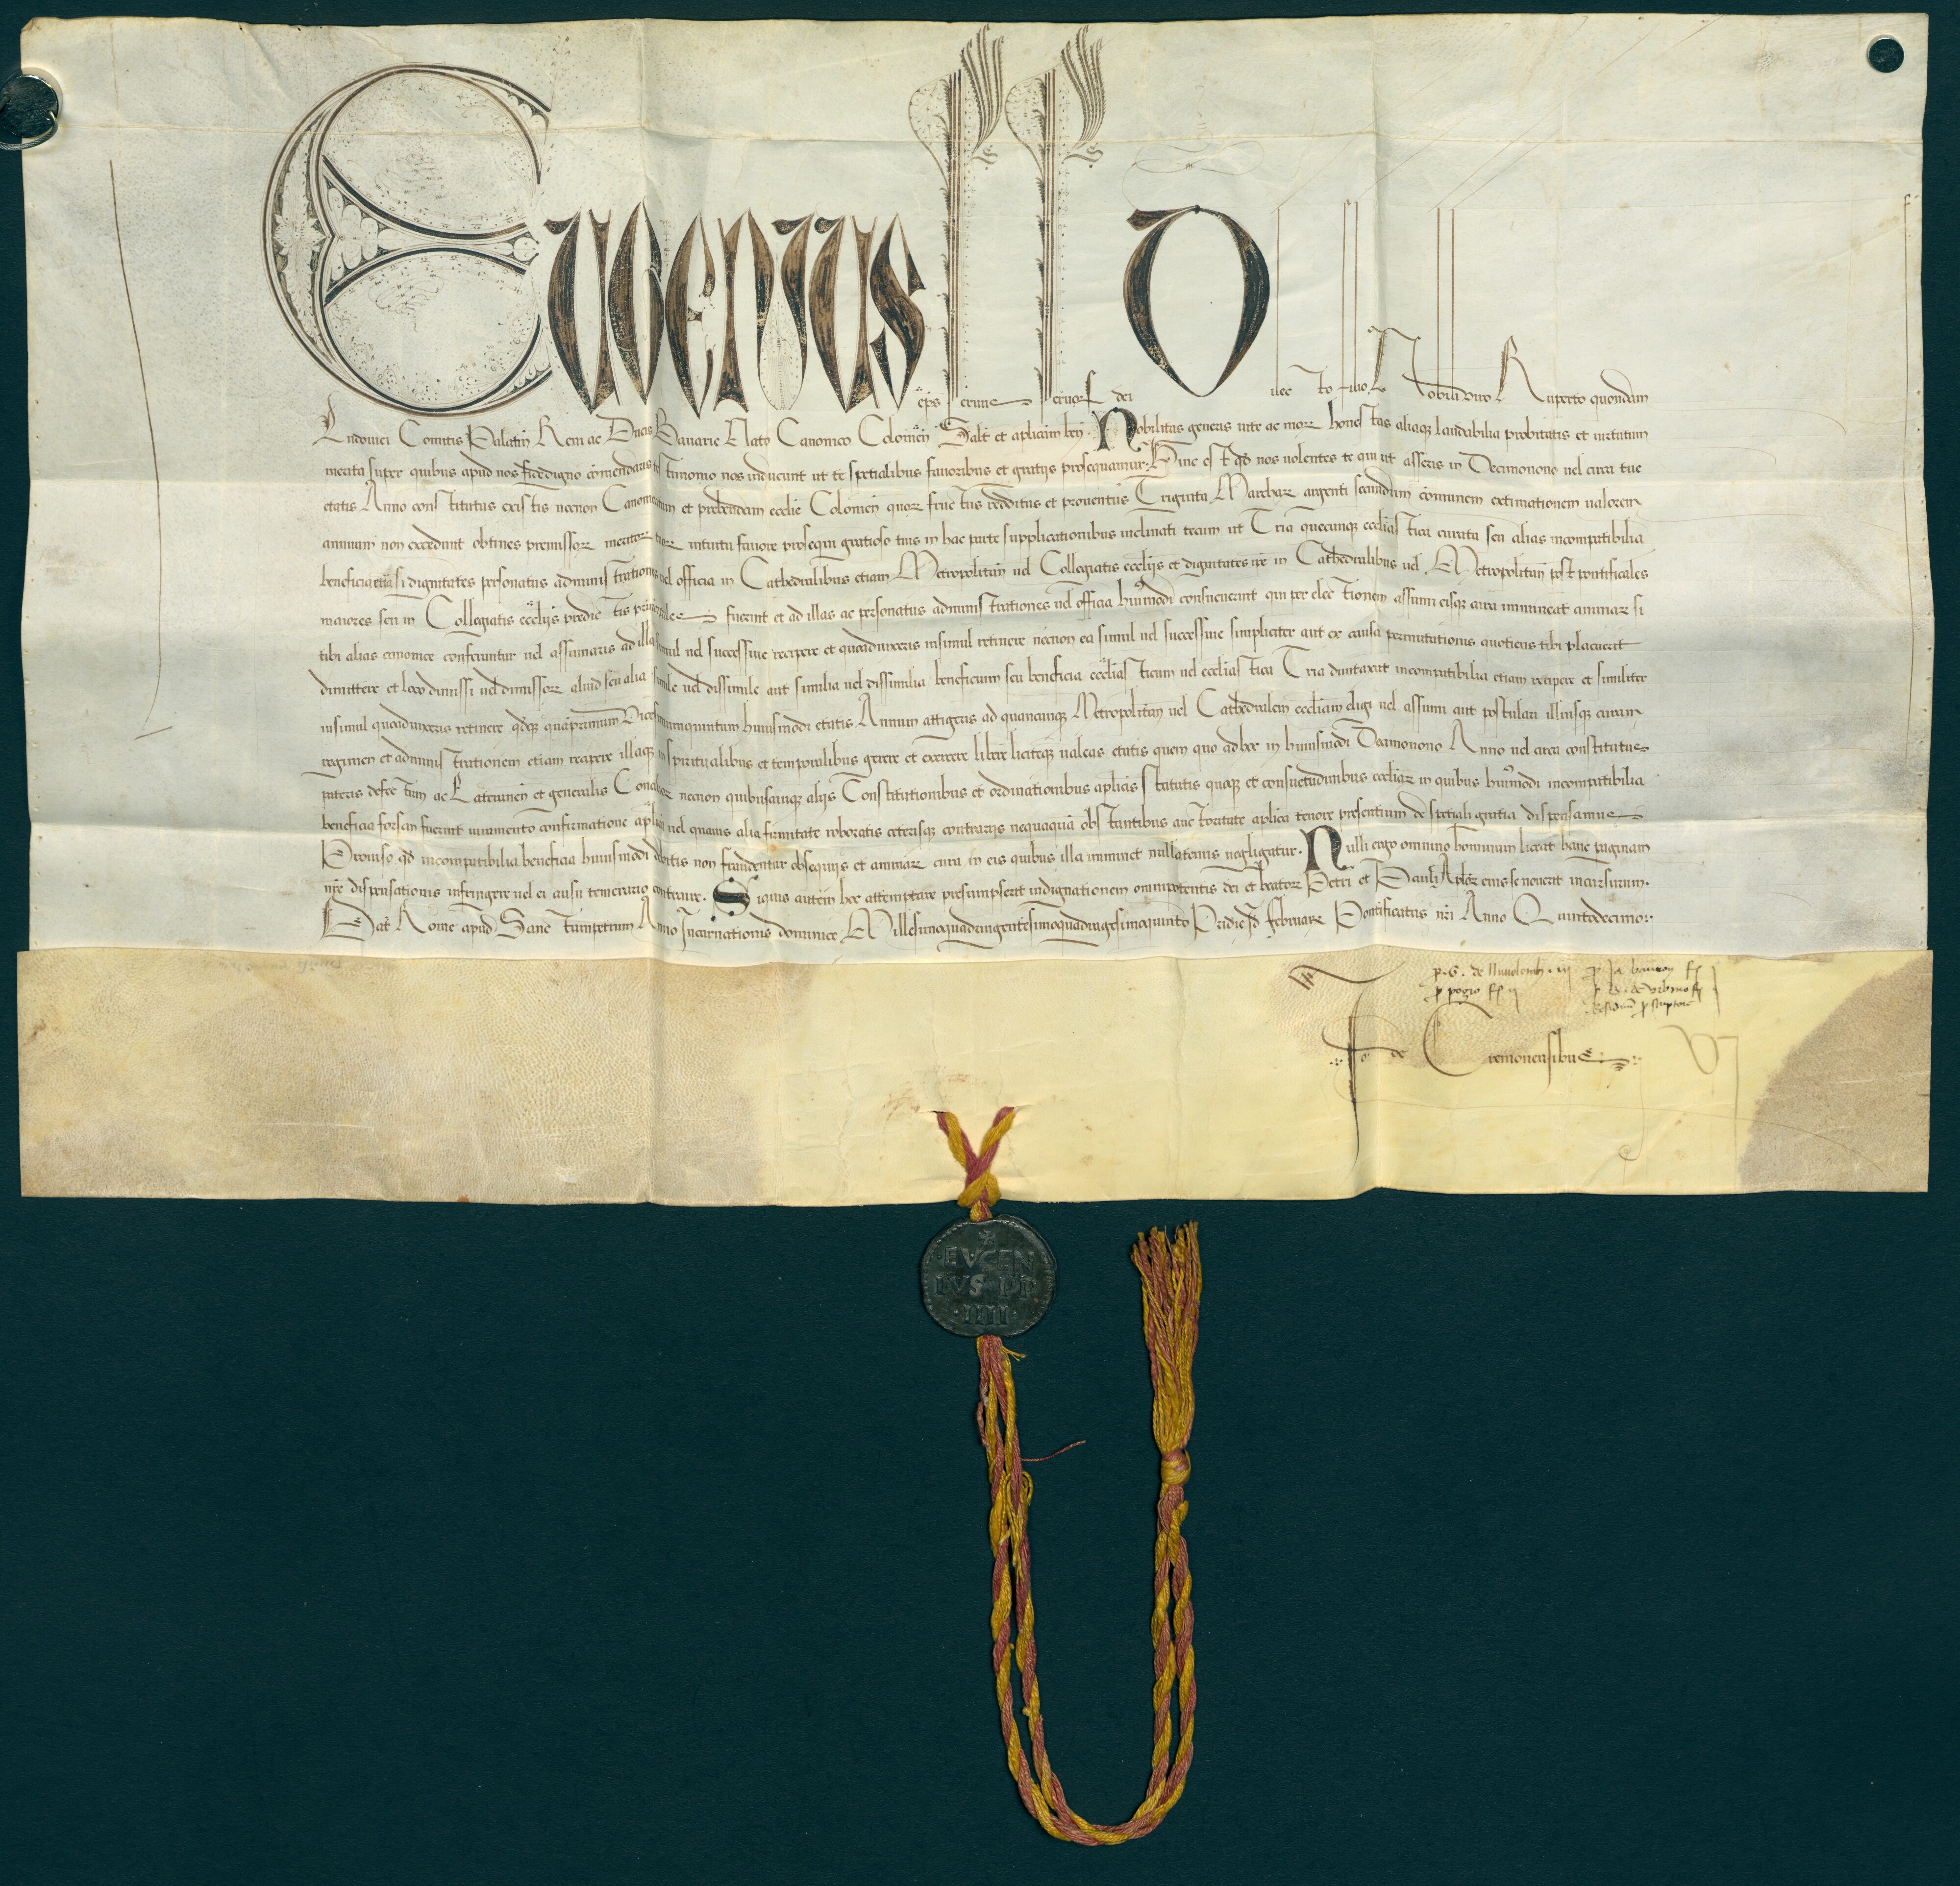 Eugenius eps seruus seruoꝝ dei Dilecto filio Nobili viro Ruperto quondam
Ludouici Comitis Palatini Reni ac Ducis Bauarie Nato Canonico Colonień Salt̄ et aplicam beń. Nobilitas generis uite ac moꝝ honestas aliaqꝫ laudabilia probitatis et uirtutum
merita super quibus apud nos fidedigno comendaris testimonio nos inducunt ut te spetialibus fauoribus et gratijs prosequamur. Hinc est qd nos uolentes te qui ut asseris in Decimonono uel circa tue
etatis Anno constitutus existis necnon Canonicatum et prebendam ecclie Colonień quoꝝ fructus redditus et prouentus Triginta Marchaꝝ argenti secundum comunem extimationem ualorem
annuum non excedunt obtines premissoꝝ meritoꝝ tuoꝝ intuitu fauore prosequi gratioso tuis in hac parte supplicationibus inclinati tecum ut Tria quecunqꝫ eccliastica curata seu alias incompatibilia
beneficia etiā si dignitates personatus administrationes uel officia in Cathedralibus etiam Metropolitań uel Collegiatis ecclijs et dignitates ipe in Cathedralibus uel Metropolitań post pontificales
maiores seu in Collegiatis ecclijs predictis principales fuerint et ad illas ac personatus administrationes uel officia huiᵒmodi consueuerint qui per electionem assumi eisqꝫ cura immineat animaꝝ si
tibi alias canonice conferantur uel assumaris ad illa simul uel successiue recipere et quoaduixeris insimul retinere necnon ea simul uel successiue simpliciter aut ex causa permutationis quotiens tibi placuerit
dimittere et loco dimissi uel dimissoꝝ aliud seu alia simile uel dissimile aut similia uel dissimilia beneficium seu beneficia eccliasticum uel eccliastica Tria duntaxat incompatibilia etiam recipere et similiter
insimul quoaduixeris retinere qdqꝫ quāprimum Vicesimumquintum huiusmodi etatis Annum attigeris ad quancunqꝫ Metropolitań uel Cathedralem eccliam eligi uel assumi aut postulari illiusqꝫ curam
regimen et administrationem etiam recipere illaqꝫ in spiritualibus et temporalibus gerere et exercere libere liciteqꝫ ualeas etatis quem quo adhoc in huiusmodi Decimonono Anno uel circa constitutus
pateris defectum ac Lateraneń et generalis Concilioꝝ necnon quibuscunqꝫ alijs Constitutionibus et ordinationibus aplicis statutis quoqꝫ et consuetudinibus eccliaꝝ in quibus huiᵒmodi incompatibilia
beneficia forsan fuerint iuramento confirmatione aplica uel quauis alia firmitate roboratis ceterisqꝫ contrarijs nequaquā obstantibus auctoritate aplica tenore presentium de spetiali gratia dispensamus
Prouiso qd incompatibilia beneficia huiusmodi debitis non fraudentur obsequijs et animaꝝ cura in eis quibus illa imminet nullatenus negligatur. Nulli ergo omnino hominum liceat hanc paginam
nre dispensationis infringere uel ei ausu temerario contraire. Siquis autem hoc attemptare presumpserit indignationem omnipotentis dei et beatoꝝ Petri et Pauli Aploꝝ eius se nouerit incursurum.
Dat̄ Rome apud Sanctumpetrum Anno Incarnationis dominice Millesimoquadringentesimoquadragesimoquinto Pridie Id̄ Februarij Pontificatus nri Anno Quintodecimo.
p. G. de
p pogio
p G. de Vrbino
p scriptore
Jo de Cremonensibus
EVGEN
IVS PP
IIII